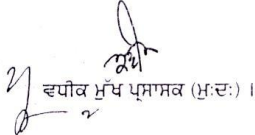 ਵਧੀਕ ਮੁੱਖ ਪ੍ਰਸਾਸਕ (ਮੁ:ਦ:) ।